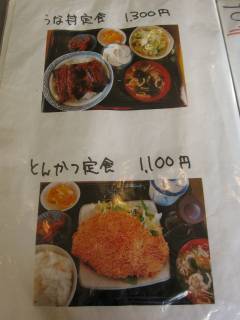 うな丼定食 1,300円
とんかつ定食 1,100円